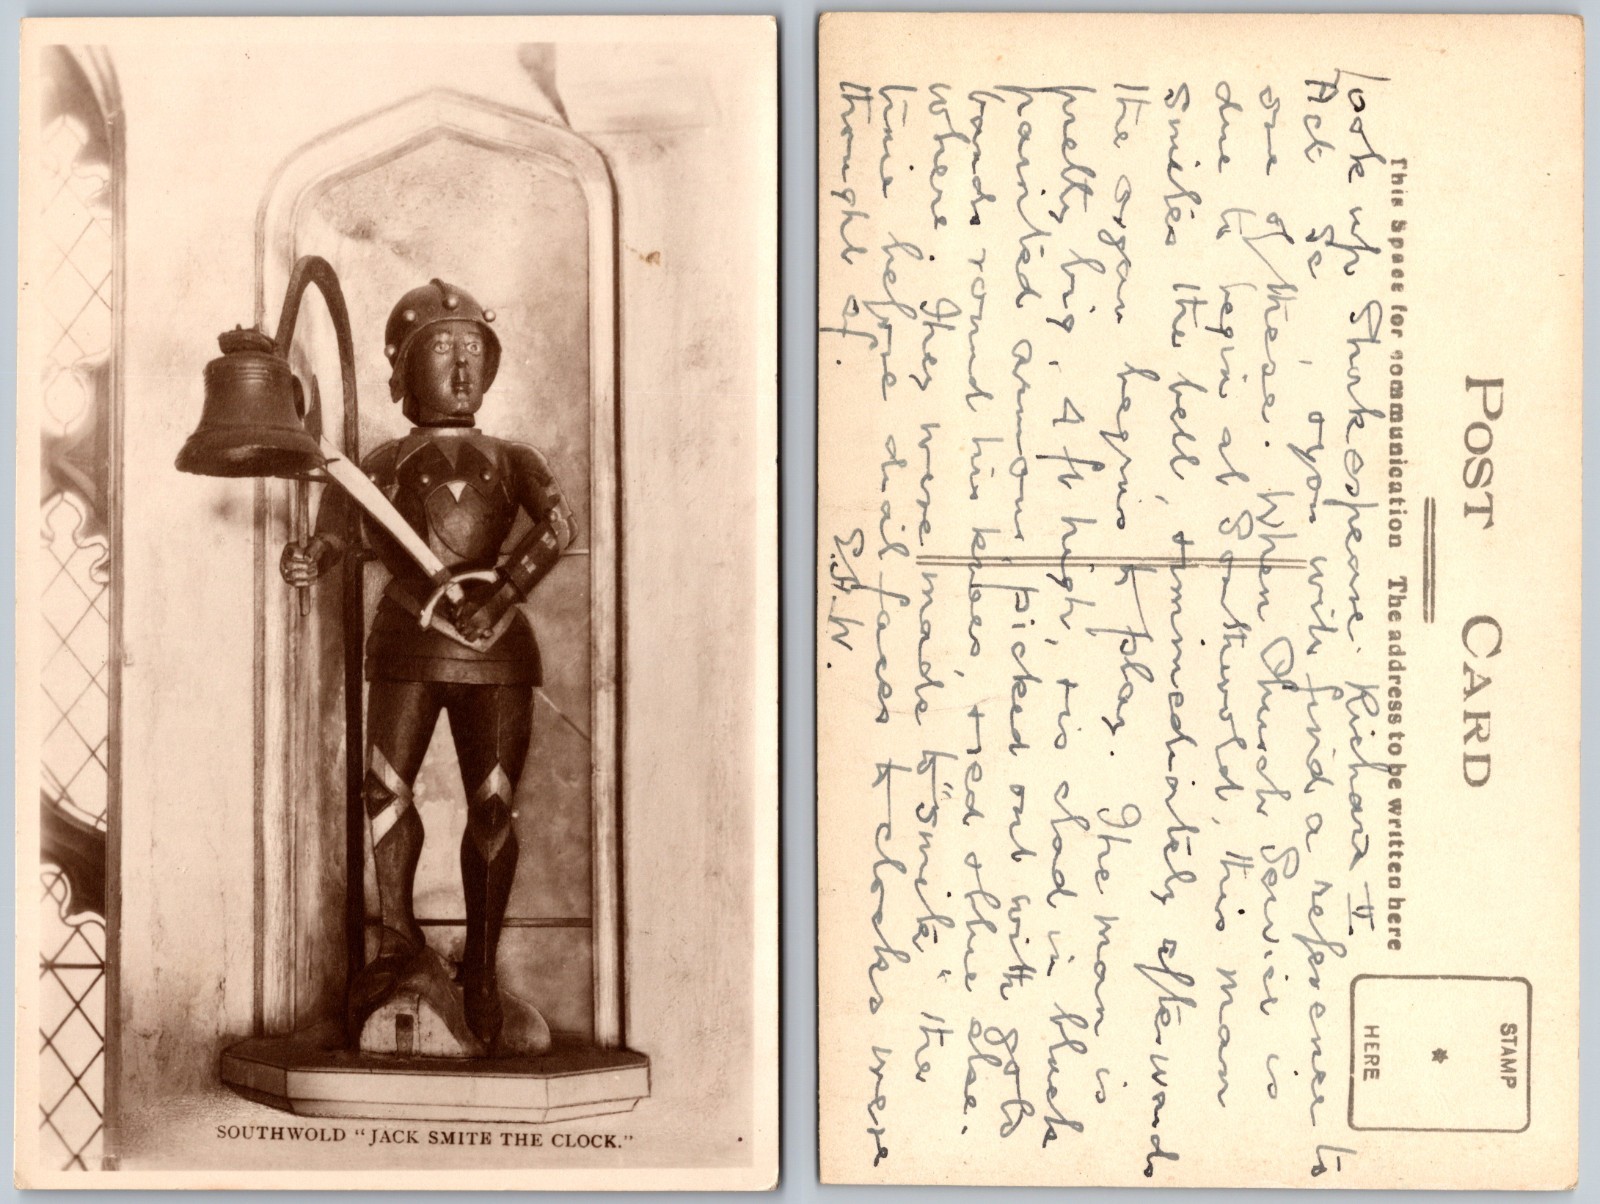 SOUTHWOLD "JACK SMITE THE CLOCK."
POST CARD
This Space for communication The address to be written here
STAMP
*
HERE
Look up Shakespeare. Richard II.
Act 5c, you will find a reference to
one of these. When Church Service is
due to begin at Southwold, this man
smites the bell, & immediately afterwards
the organ begins to play. The man is
pretty big, 4 ft high, & is clad in black
painted armour, picked out with gold
bands round his knees, & red & blue else.
where. They were made to "smite" the
time before dial faces to clocks were
thought of.
E.H.W.